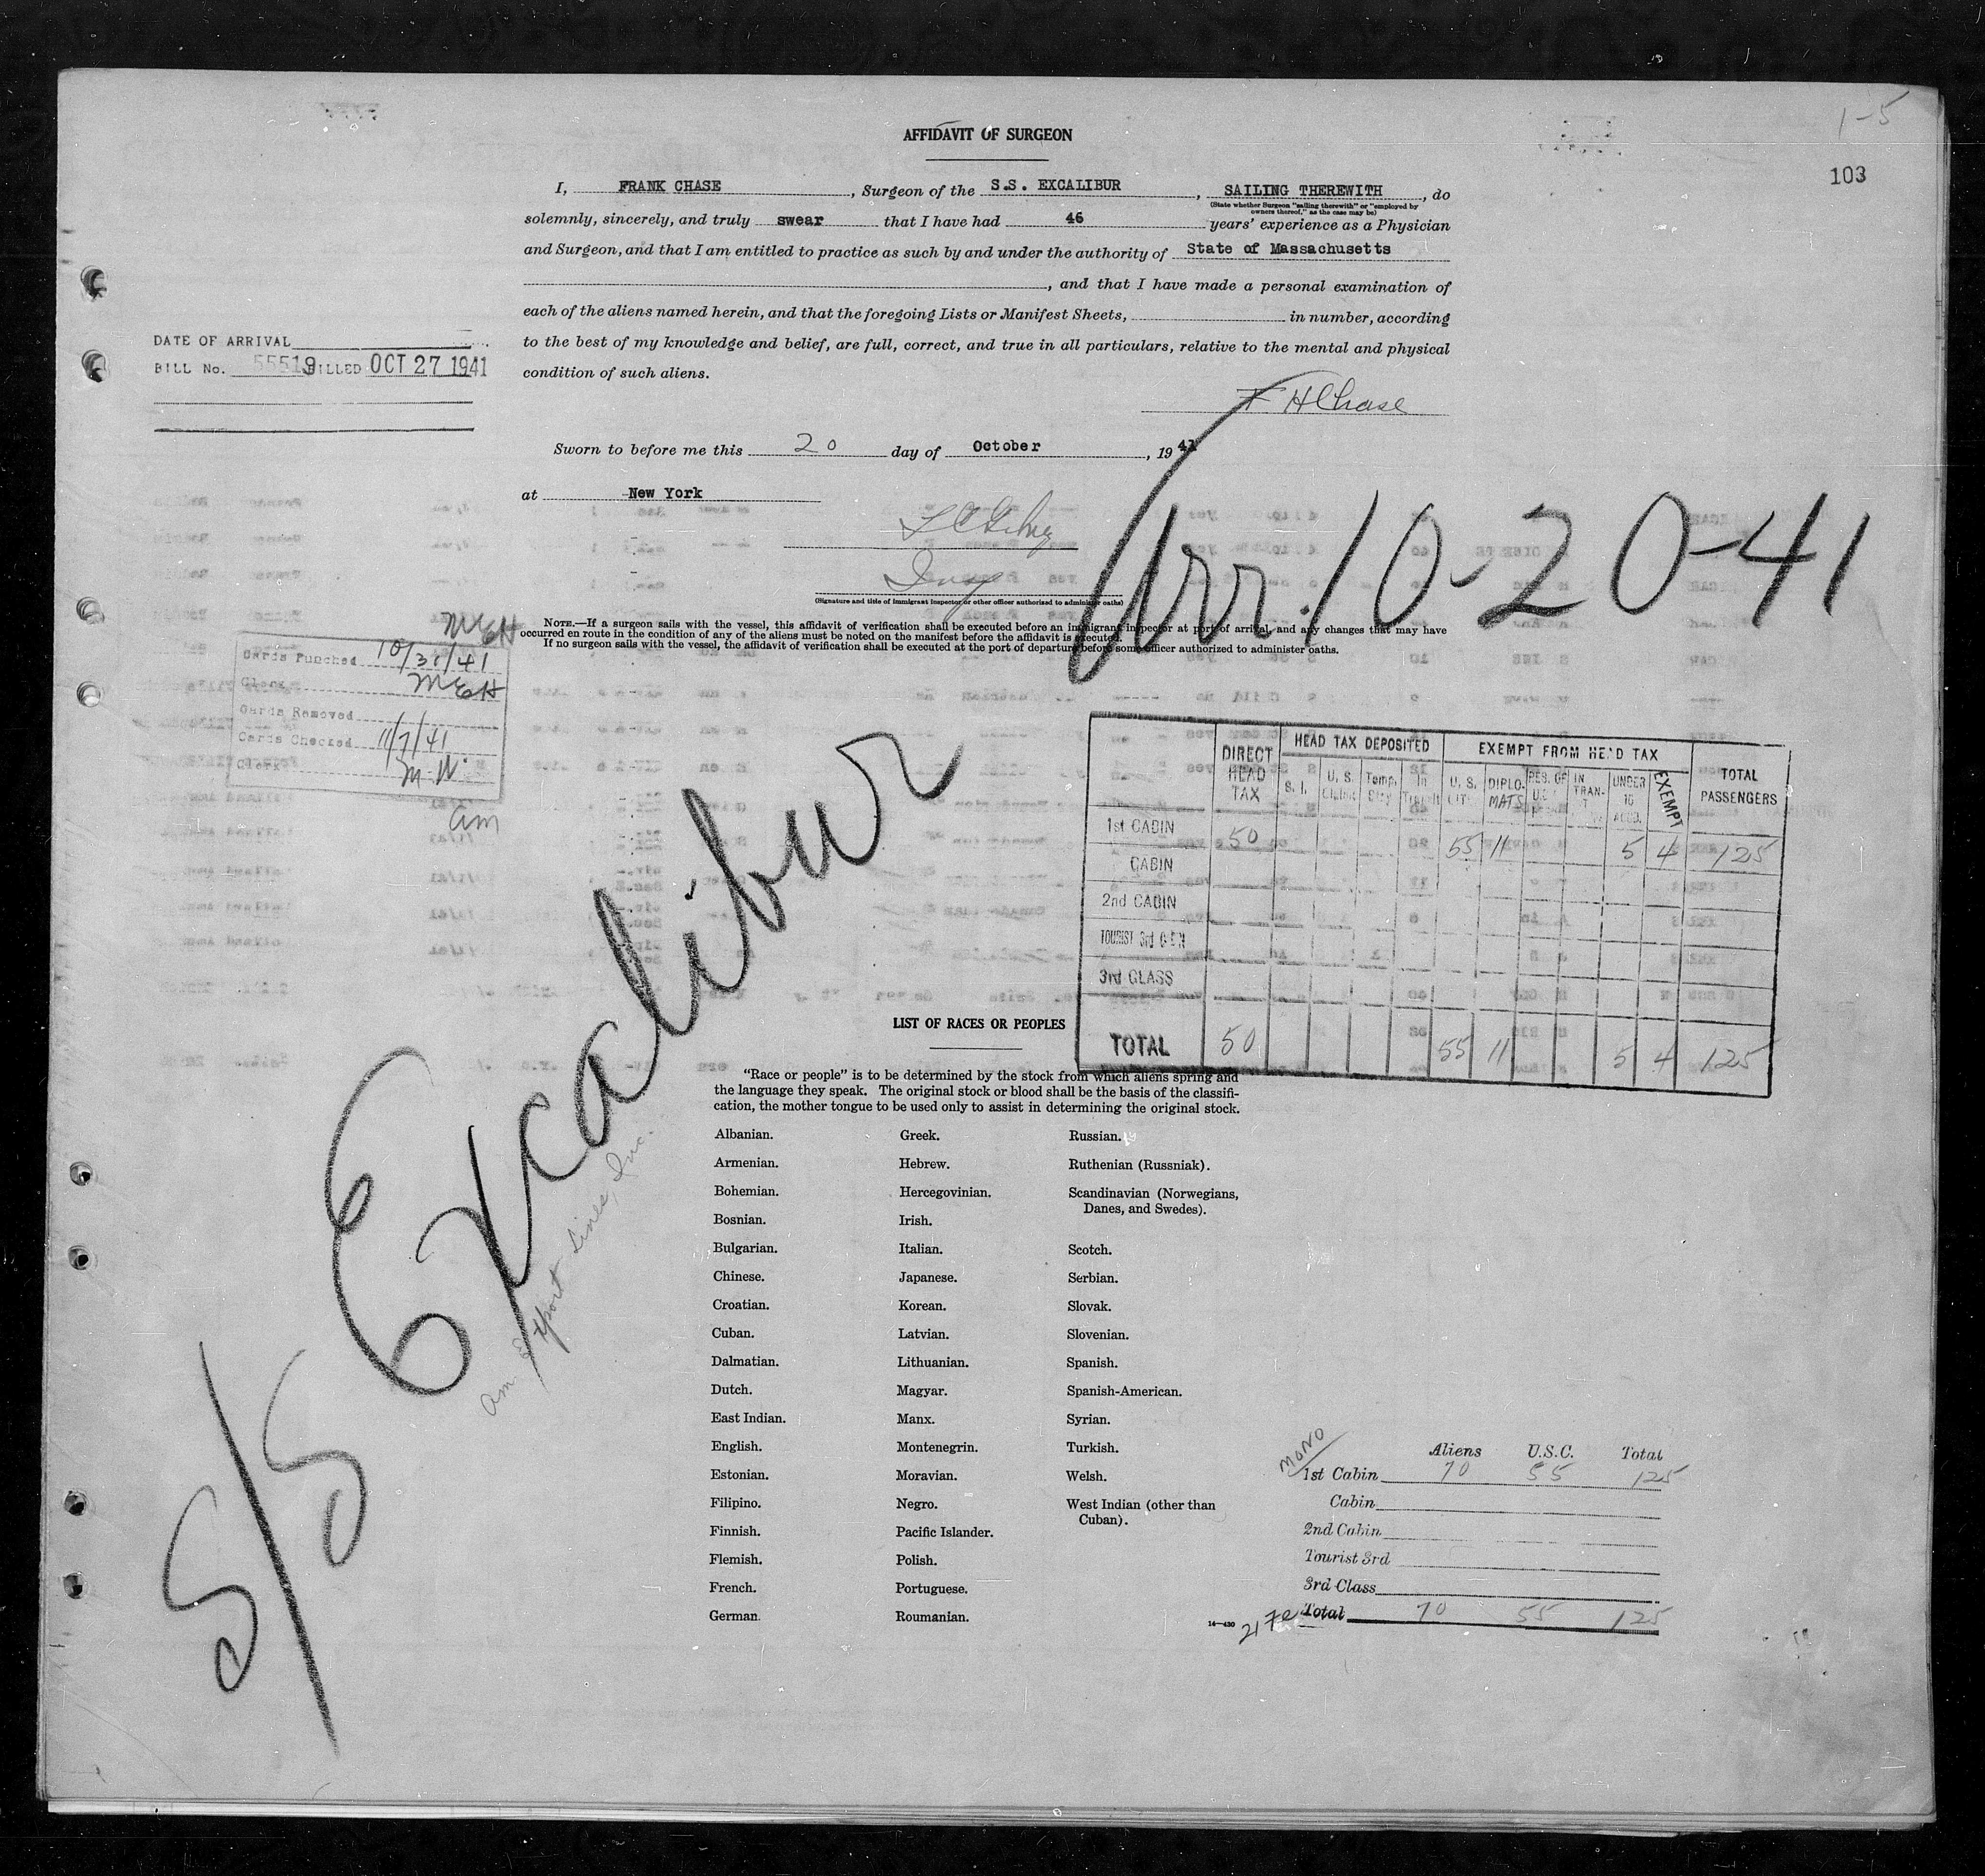 1-5
103
AFFIDAVIT OF SURGEON
I, FRANK CHASE, Surgeon of the S.S. EXCALIBUR, SAILING THEREWITH, do
(State whether Surgeon "sailing therewith" or "employed by
owners thereof," as the case may be)
solemnly, sincerely, and truly swear that I have had 46 years' experience as a Physician
and Surgeon, and that I am entitled to practice as such by and under the authority of State of Massachusetts
, and that I have made a personal examination of
each of the aliens named herein, and that the foregoing Lists or Manifest Sheets, in number, according
to the best of my knowledge and belief, are full, correct, and true in all particulars, relative to the mental and physical
condition of such aliens.
DATE OF ARRIVAL
BILL No. 55519 BILLED OCT 27 1941
F H Chase
Sworn to before me this 20 day of October, 1941
at New York
Arr. 10-20-41
(Signature and title of immigrant inspector or other officer authorized to administer oaths)
NOTE.—If a surgeon sails with the vessel, this affidavit of verification shall be executed before an immigrant inspector at port of arrival, and any changes that may have
occurred en route in the condition of any of the aliens must be noted on the manifest before the affidavit is executed.
If no surgeon sails with the vessel, the affidavit of verification shall be executed at the port of departure before some officer authorized to administer oaths.
MEH
Cards Punched 10/31/41
Clerk MEH
Cards Removed
Cards Checked 11/7/41
Clerk M.W.
am
DIRECT HEAD TAX
HEAD TAX DEPOSITED
EXEMPT FROM HEAD TAX
TOTAL PASSENGERS
S. I. U. S. Temp. Stay In Transit U. S. CIT. DIPLOMATS RES. OF IN TRAN- UNDER 16 ACCO. EXEMPT
1st CABIN 50 55 11 5 4 125
CABIN
2nd CABIN
TOURIST 3rd
3rd CLASS
TOTAL 50 55 11 5 4 125
S/S Excalibur
Am Export Lines, Inc.
LIST OF RACES OR PEOPLES
"Race or people" is to be determined by the stock from which aliens spring and
the language they speak. The original stock or blood shall be the basis of the classifi-
cation, the mother tongue to be used only to assist in determining the original stock.
Albanian. Greek. Russian.
Armenian. Hebrew. Ruthenian (Russniak).
Bohemian. Hercegovinian. Scandinavian (Norwegians,
Danes, and Swedes).
Bosnian. Irish.
Bulgarian. Italian. Scotch.
Chinese. Japanese. Serbian.
Croatian. Korean. Slovak.
Cuban. Latvian. Slovenian.
Dalmatian. Lithuanian. Spanish.
Dutch. Magyar. Spanish-American.
East Indian. Manx. Syrian.
English. Montenegrin. Turkish.
Estonian. Moravian. Welsh.
Filipino. Negro. West Indian (other than
Cuban).
Finnish. Pacific Islander.
Flemish. Polish.
French. Portuguese.
German. Roumanian.
14-430
MONO
Aliens U.S.C. Total
1st Cabin 70 55 125
Cabin
2nd Cabin
Tourist 3rd
3rd Class
Total 70 55 125